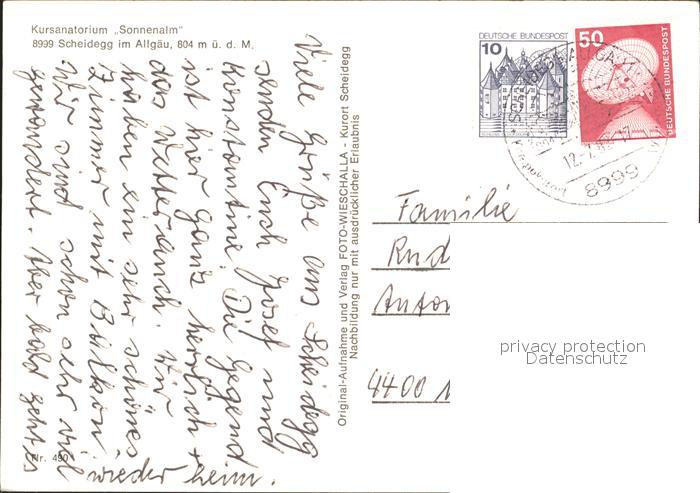 Kursanatorium „Sonnenalm"
8999 Scheidegg im Allgäu, 804 m ü. d. M.
Viele Grüße aus Scheidegg
senden Euch Josef und
Konstantine. Die Gegend
ist hier ganz herrlich +
das Wetter auch. Wir
haben ein sehr schönes
Zimmer mit Balkon.
Wir sind schon sehr viel
gewandert. Aber bald geht es
wieder heim.
Nr. 490
Original-Aufnahme und Verlag FOTO-WIESCHALLA - Kurort Scheidegg
Nachbildung nur mit ausdrücklicher Erlaubnis
DEUTSCHE BUNDESPOST
10
50
DEUTSCHE BUNDESPOST
8999
Familie
Rud
Anton
4400
privacy protection
Datenschutz